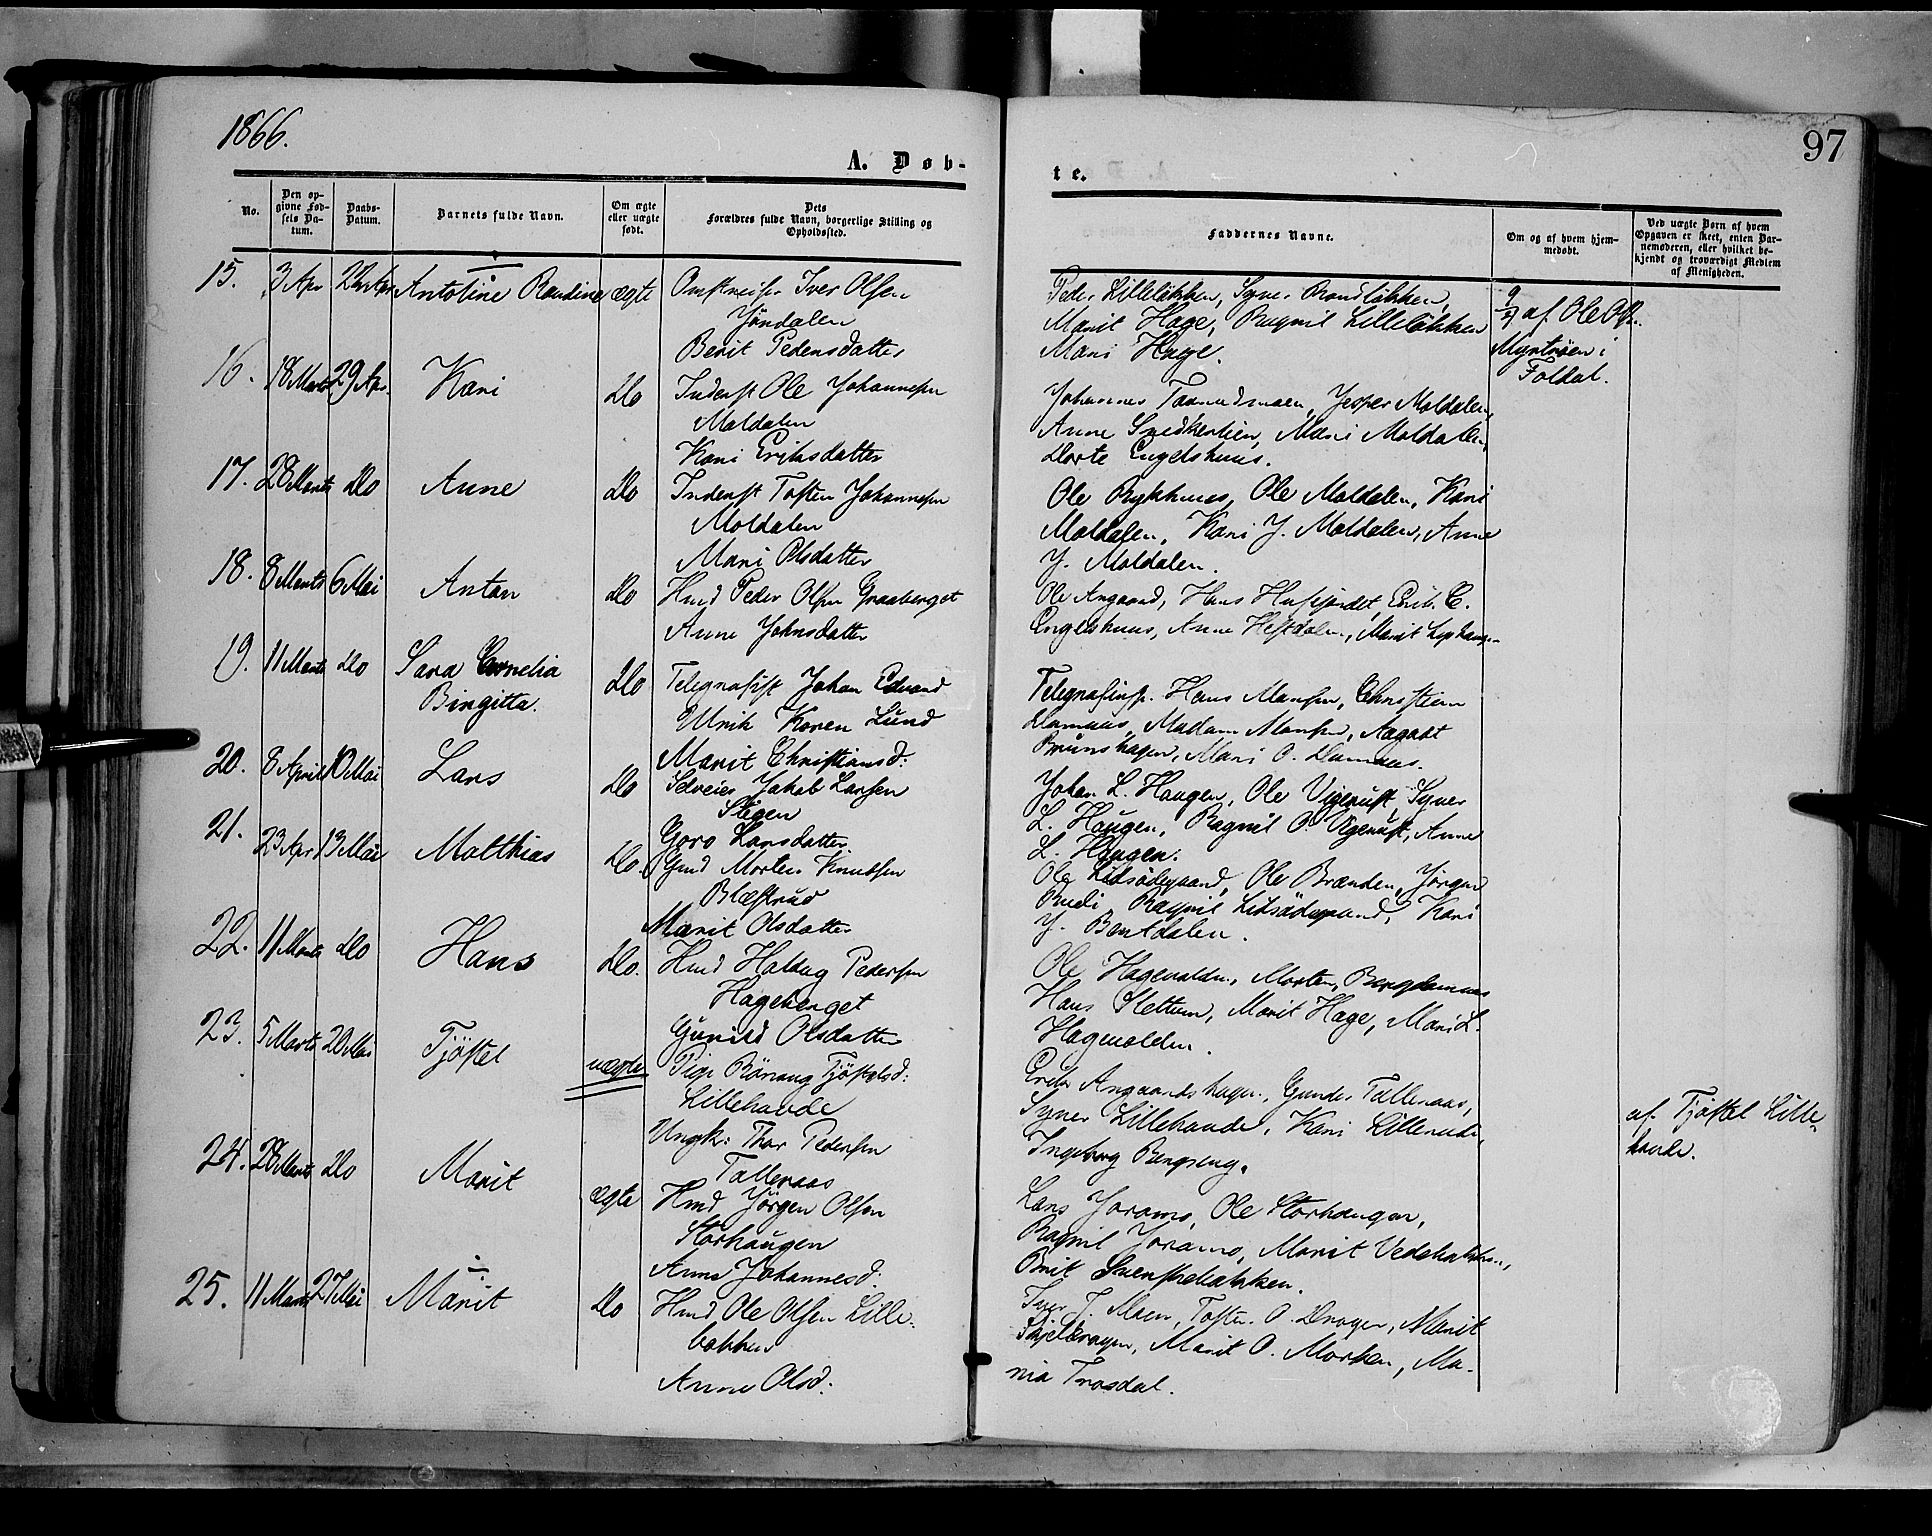 1866.
97
A. Døb-
te.
No.
Den op-
givne Fød-
sels Da-
tum.
Daabs-
Datum.
Barnets fulde Navn.
Om ægte
eller uægte
født.
Dets
Forældres fulde Navn, borgerlige Stilling og
Opholdssted.
Faddernes Navne.
Om og af hvem hjem-
medøbt.
Ved uægte Børn af hvem
Opgaven er skeet, enten Bar-
nemoderen, eller hvilket be-
kjendt og troværdigt Medlem
af Menigheden.
15. 3 Apr 22 Apr Antotine Randine ægte Iver Olsen
Jöndalen
Berit Pedersdatter
Peder Lillelökken, Syver Brandlökken,
Marit Hage, Ragnil Lillelökken
Mari Hage.
9/4 af Ole Ols.
Myrtröen i
Foldal.
16. 18 Marts 29 Apr. Kari Do Inderst Ole Johannesen
Moldalen
Kari Eriksdatter
Johannes Jesper Moldalen,
Anne Snedkerlien, Mari Moldalen,
Dorte Engelshuus.
17. 28 Marts Do Anne Do Inderst Tosten Johannesen
Moldalen
Mari Olsdatter
Ole Rykhuus, Ole Moldalen, Kari
Moldalen, Kari J. Moldalen, Anne
J. Moldalen.
18. 8 Marts 6 Mai Anton Do Hmd Peder Olsen Graaberget
Anne Johnsdatter
Ole Angaard, Hans Erik E.
Engelshuus, Anne Hestdalen, Marit
19. 11 Marts Do Sara Cornelia
Birgitta.
Do Telegrafist Johan Edvard
Ulrik Koren Lund
Marit Christiansd:
Telegrafinsp. Hans Mansen, Christian
Damaas, Madam Mansen, Aagodt
Brunshagen, Mari O. Damaas.
20. 8 April 10 Mai Lars Do Selveier Jakob Larsen
Stegen
Goro Larsdatter
Johan L. Haugen, Ole Vigerust, Syver
L. Haugen, Ragnil O. Vigerust, Anne
L. Haugen.
21. 23 Apr 13 Mai Matthias Do. Gmd Morten Knudsen
Blæstrud
Marit Olsdatter
Ole Lidsödegaard, Ole Brænden, Jörgen
Rudi Ragnil Lidsödegaard, Kari
J. Bentdalen.
22. 11 Marts Do Hans Do. Hmd Haldog Pedersen
Hageberget
Gunild Olsdatter
Ole Hagevolden, Morten Bergdamaas
Hans Slettum, Marit Hage, Mari L.
Hagevolden.
23. 5 Marts 20 Mai Tjöstel uægte Pige Rönnaug Tjöstelsd:
Lillehaode
Ungk: Thor Pedersen
Talleraas
Erik Angaardshagen, Gunder Talleraas,
Syver Lillehaode, Kari Lillerudi,
Ingeborg Bergseng.
af Tjöstel Lille-
haode.
24. 28 Marts Do Marit ægte Hmd Jörgen Olsen
Storhaugen
Anne Johannesd.
Lars Joramo, Ole Storhaugen,
Ragnil Joramo, Marit
Brit
25. 11 Marts 27 Mai Marit Do Hmd Ole Olsen Lille-
bakken
Anne Olsd:
Iver J. Moen, Tosten O. Dragen, Marit
Skjeldragen, Marit O. Morken, Ma-
ria Trosdal.